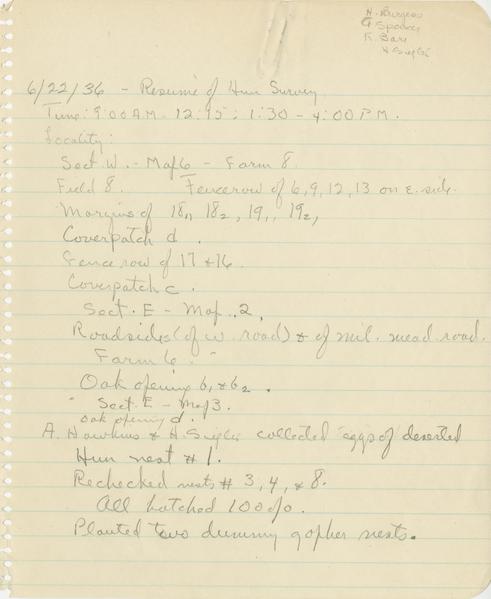 H. Burgess
G. Spooner
K. Bare
H Sugli
6/22/36 - Resumé of Hun Survey
Time: 9:00 A.M. 12:15; 1:30 - 4:00 P.M.
Locality:
Sect. W. - Map 6 - Farm 8
Field 8. Fencerow of 6, 9, 12, 13 on E. side.
Margins of 18₁, 18₂, 19₁, 19₂,
Coverpatch d.
Fence row of 17 & 16.
Coverpatch c.
Sect. E - Map 2,
Roadsides (of w. road) & of mil. mead road.
Farm 6.
Oak opening b₁ & b₂.
" Sect. E - Map 3.
Oak opening d.
A. Hawkins & H. collected eggs of deserted
Hun nest #1.
Rechecked nests # 3, 4, & 8.
All hatched 100%.
Planted two dummy gopher nests.